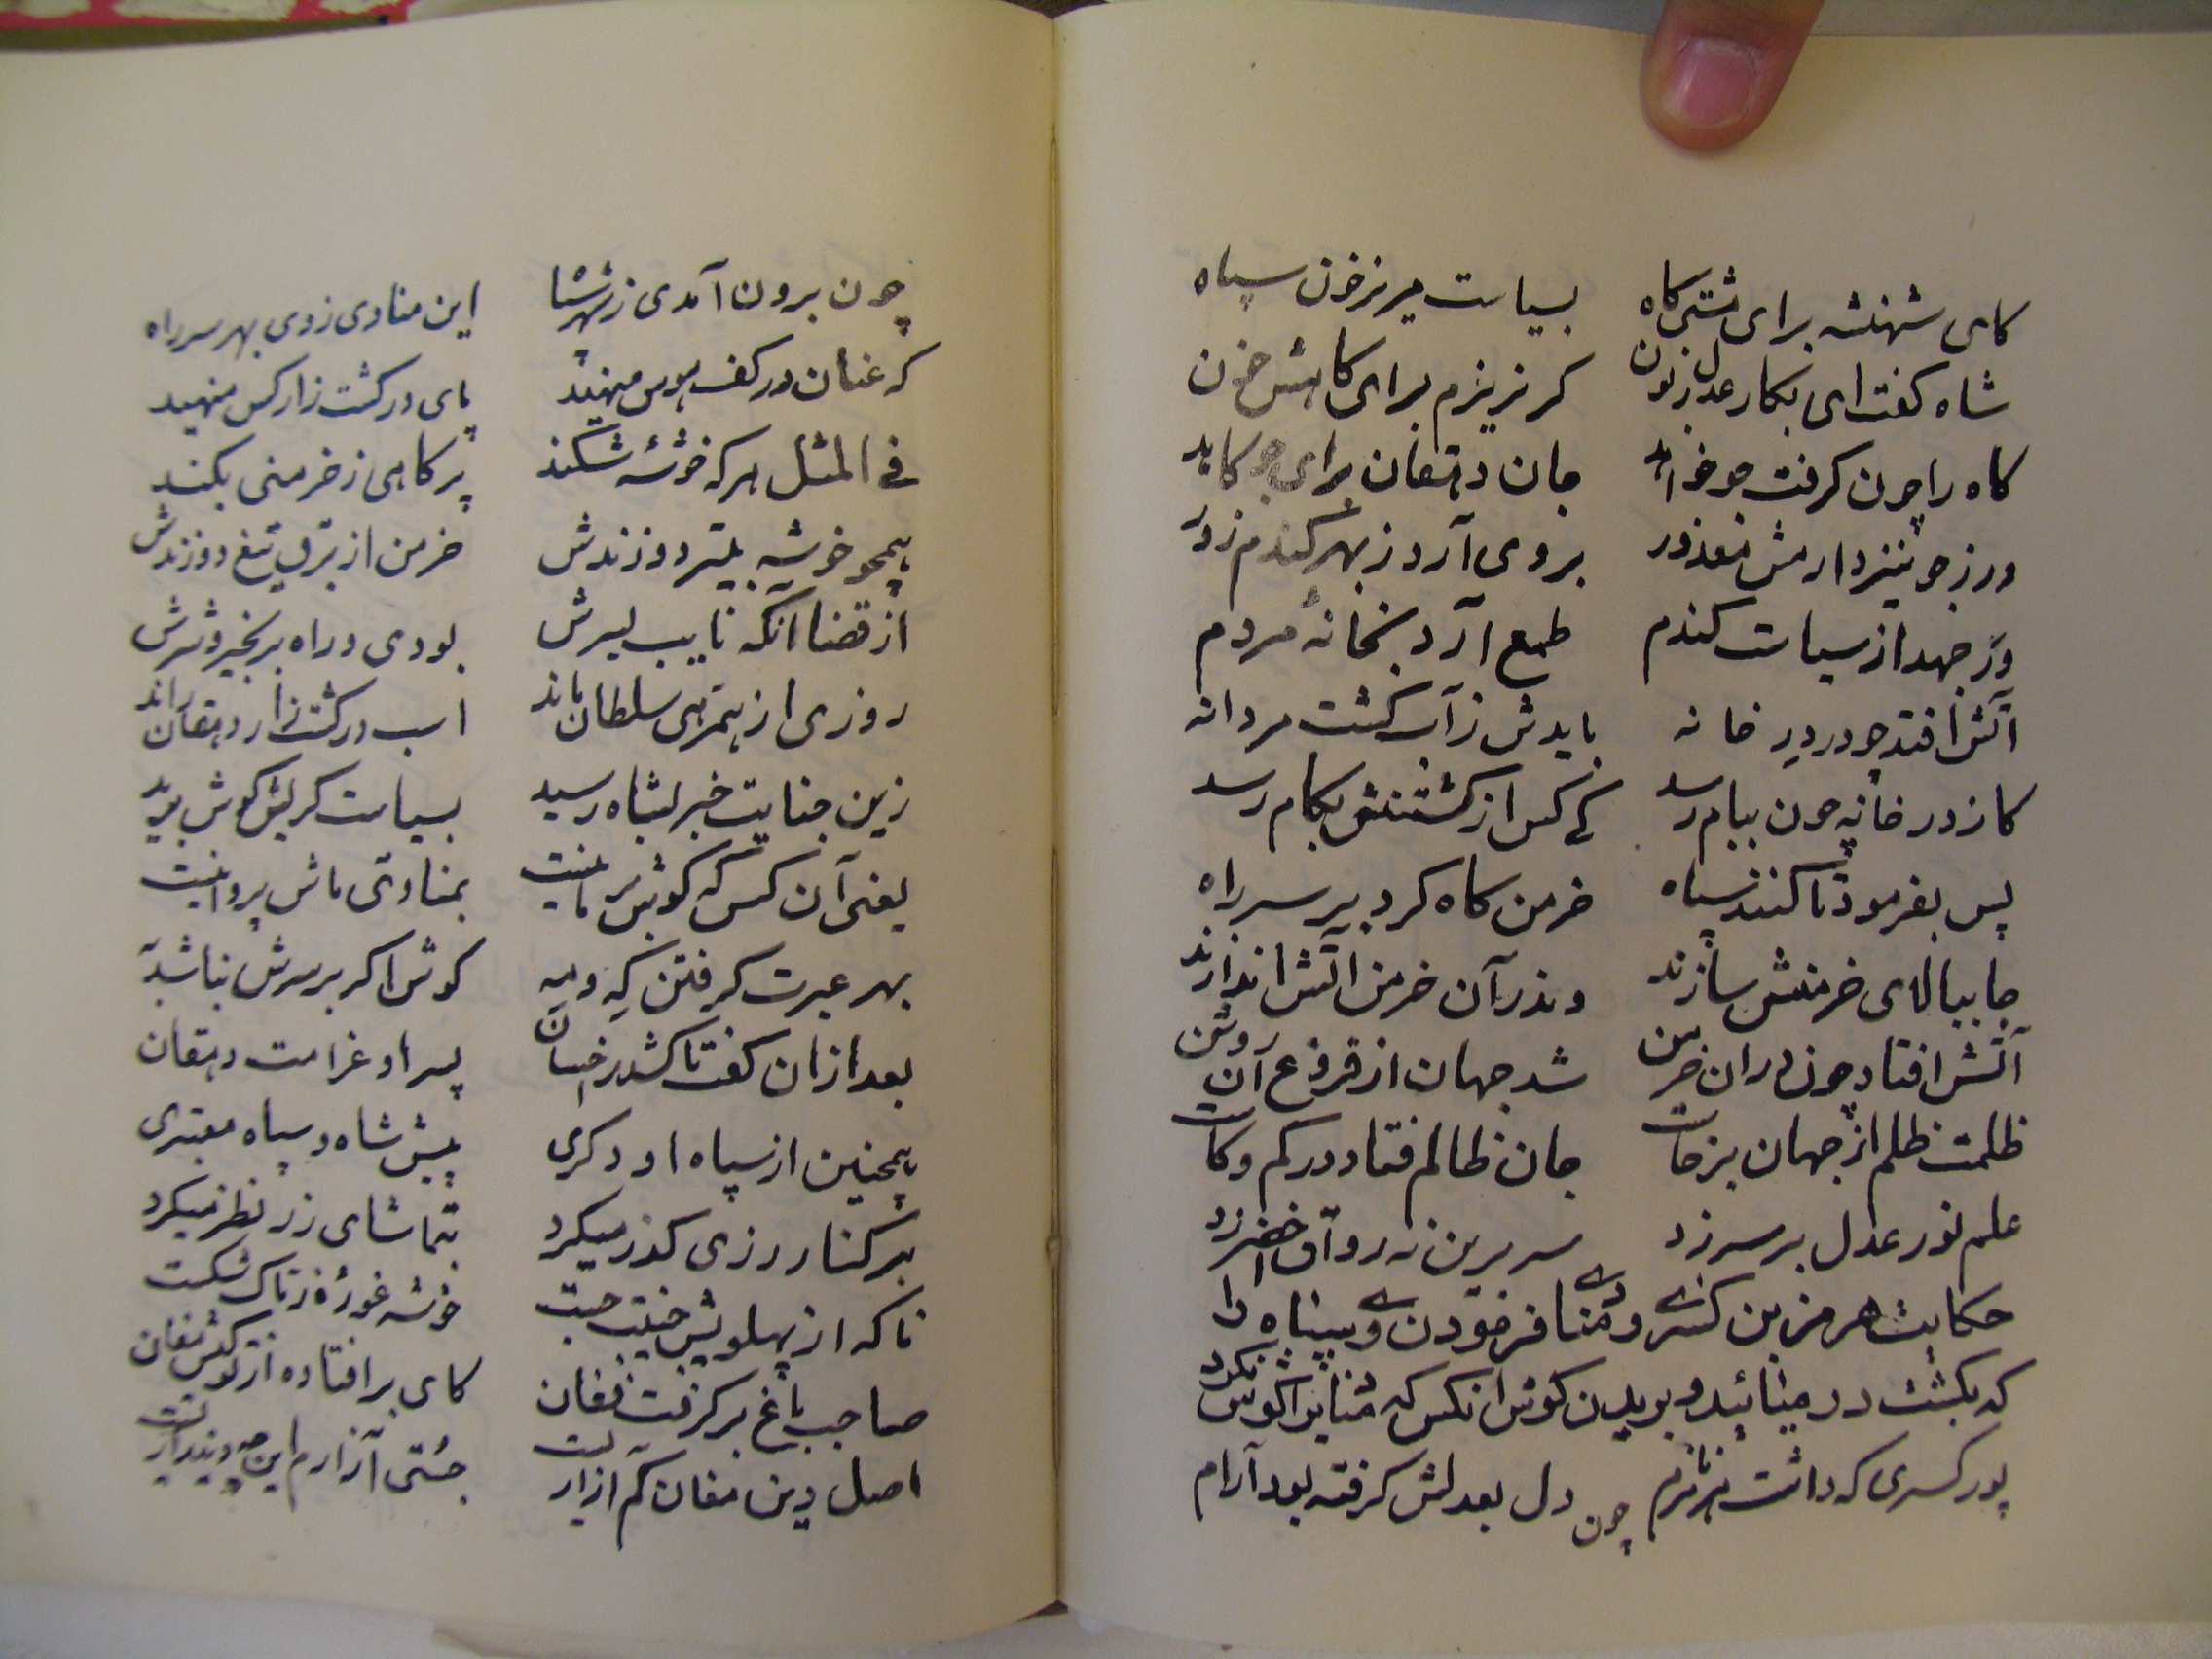 کای شهنشه برای مشتی کاه بسیاست مریز خون سپاه
شاه گفت ای بکار عدل زبون گر نریزم برای کاهش خون
کاه را چون گرفت جو خواهد جان دهقان برای جو کاهد
ور ز جو نیز دارمش معذور بروی آرد ز بهر گندم زور
ور جهد از سیاست گندم طمع آرد بخانهٔ مردم
آتش افتد چو در در خانه بایدش زآب کشت مردانه
کاز در خانه چون ببام رسد کی کس از کشتنش بکام رسد
پس بفرمود تا کنند سپاه خرمن کاه گرد بر سر راه
جا ببالای خرمنش سازند وندر آن خرمن آتش اندازند
آتش افتاد چون دران خرمن شد جهان از فروغ آن روشن
ظلمت ظلم از جهان برخاست جان ظالم فتاد در کم و کاست
علم نور عدل بر سر زد سر برین نه رواق اخضر زد
حکایت هرمز بن کسری و منادی فرمودن وی سپاه را
که بکشت در میائید و بریدن گوش انکس که منادیرا گوش نکرد
پور کسری که داشت هرمز نام چون دل بعدلش گرفته بود آرام
چون برون آمدی ز شهر شا این منادی زدی بهر سر راه
که عنان در کف هوس منهید پای در کشت زار کس منهید
فی المثل هر که خوشهٔ شکند پر کاهی ز خرمنی بکند
همچو خوشه بتیر دوزندش خرمن از برق تیغ دوزندش
از قضا آنکه نایب پسرش بودی و راه بر بخیر و شرش
روزی از همرهی سلطان ماند اسب در کشت زار دهقان راند
زین جنایت خبر بشاه رسید بسیاست گریش گوش برید
یعنی آن کس که گوش بر ما نیست بمنادی ماش پروا نیست
بهر عبرت گرفتن که و مه گوش اگر بر سرش نباشد به
بعد ازان گفت تا کشد ز خسان پسر او غرامت دهقان
همچنین از سپاه او دگری پیش شاه و سپاه معتبری
بر کنار رزی گذر میکرد بتماشای رز نظر میکرد
ناگه از پهلویش جنیبت جست خوشه غورهٔ ز تاک شکست
صاحب باغ برگرفت فغان کای برافتاده از تو کیش مغان
اصل دین مغان کم آزاریست جستی آزارم این چه دینداریست